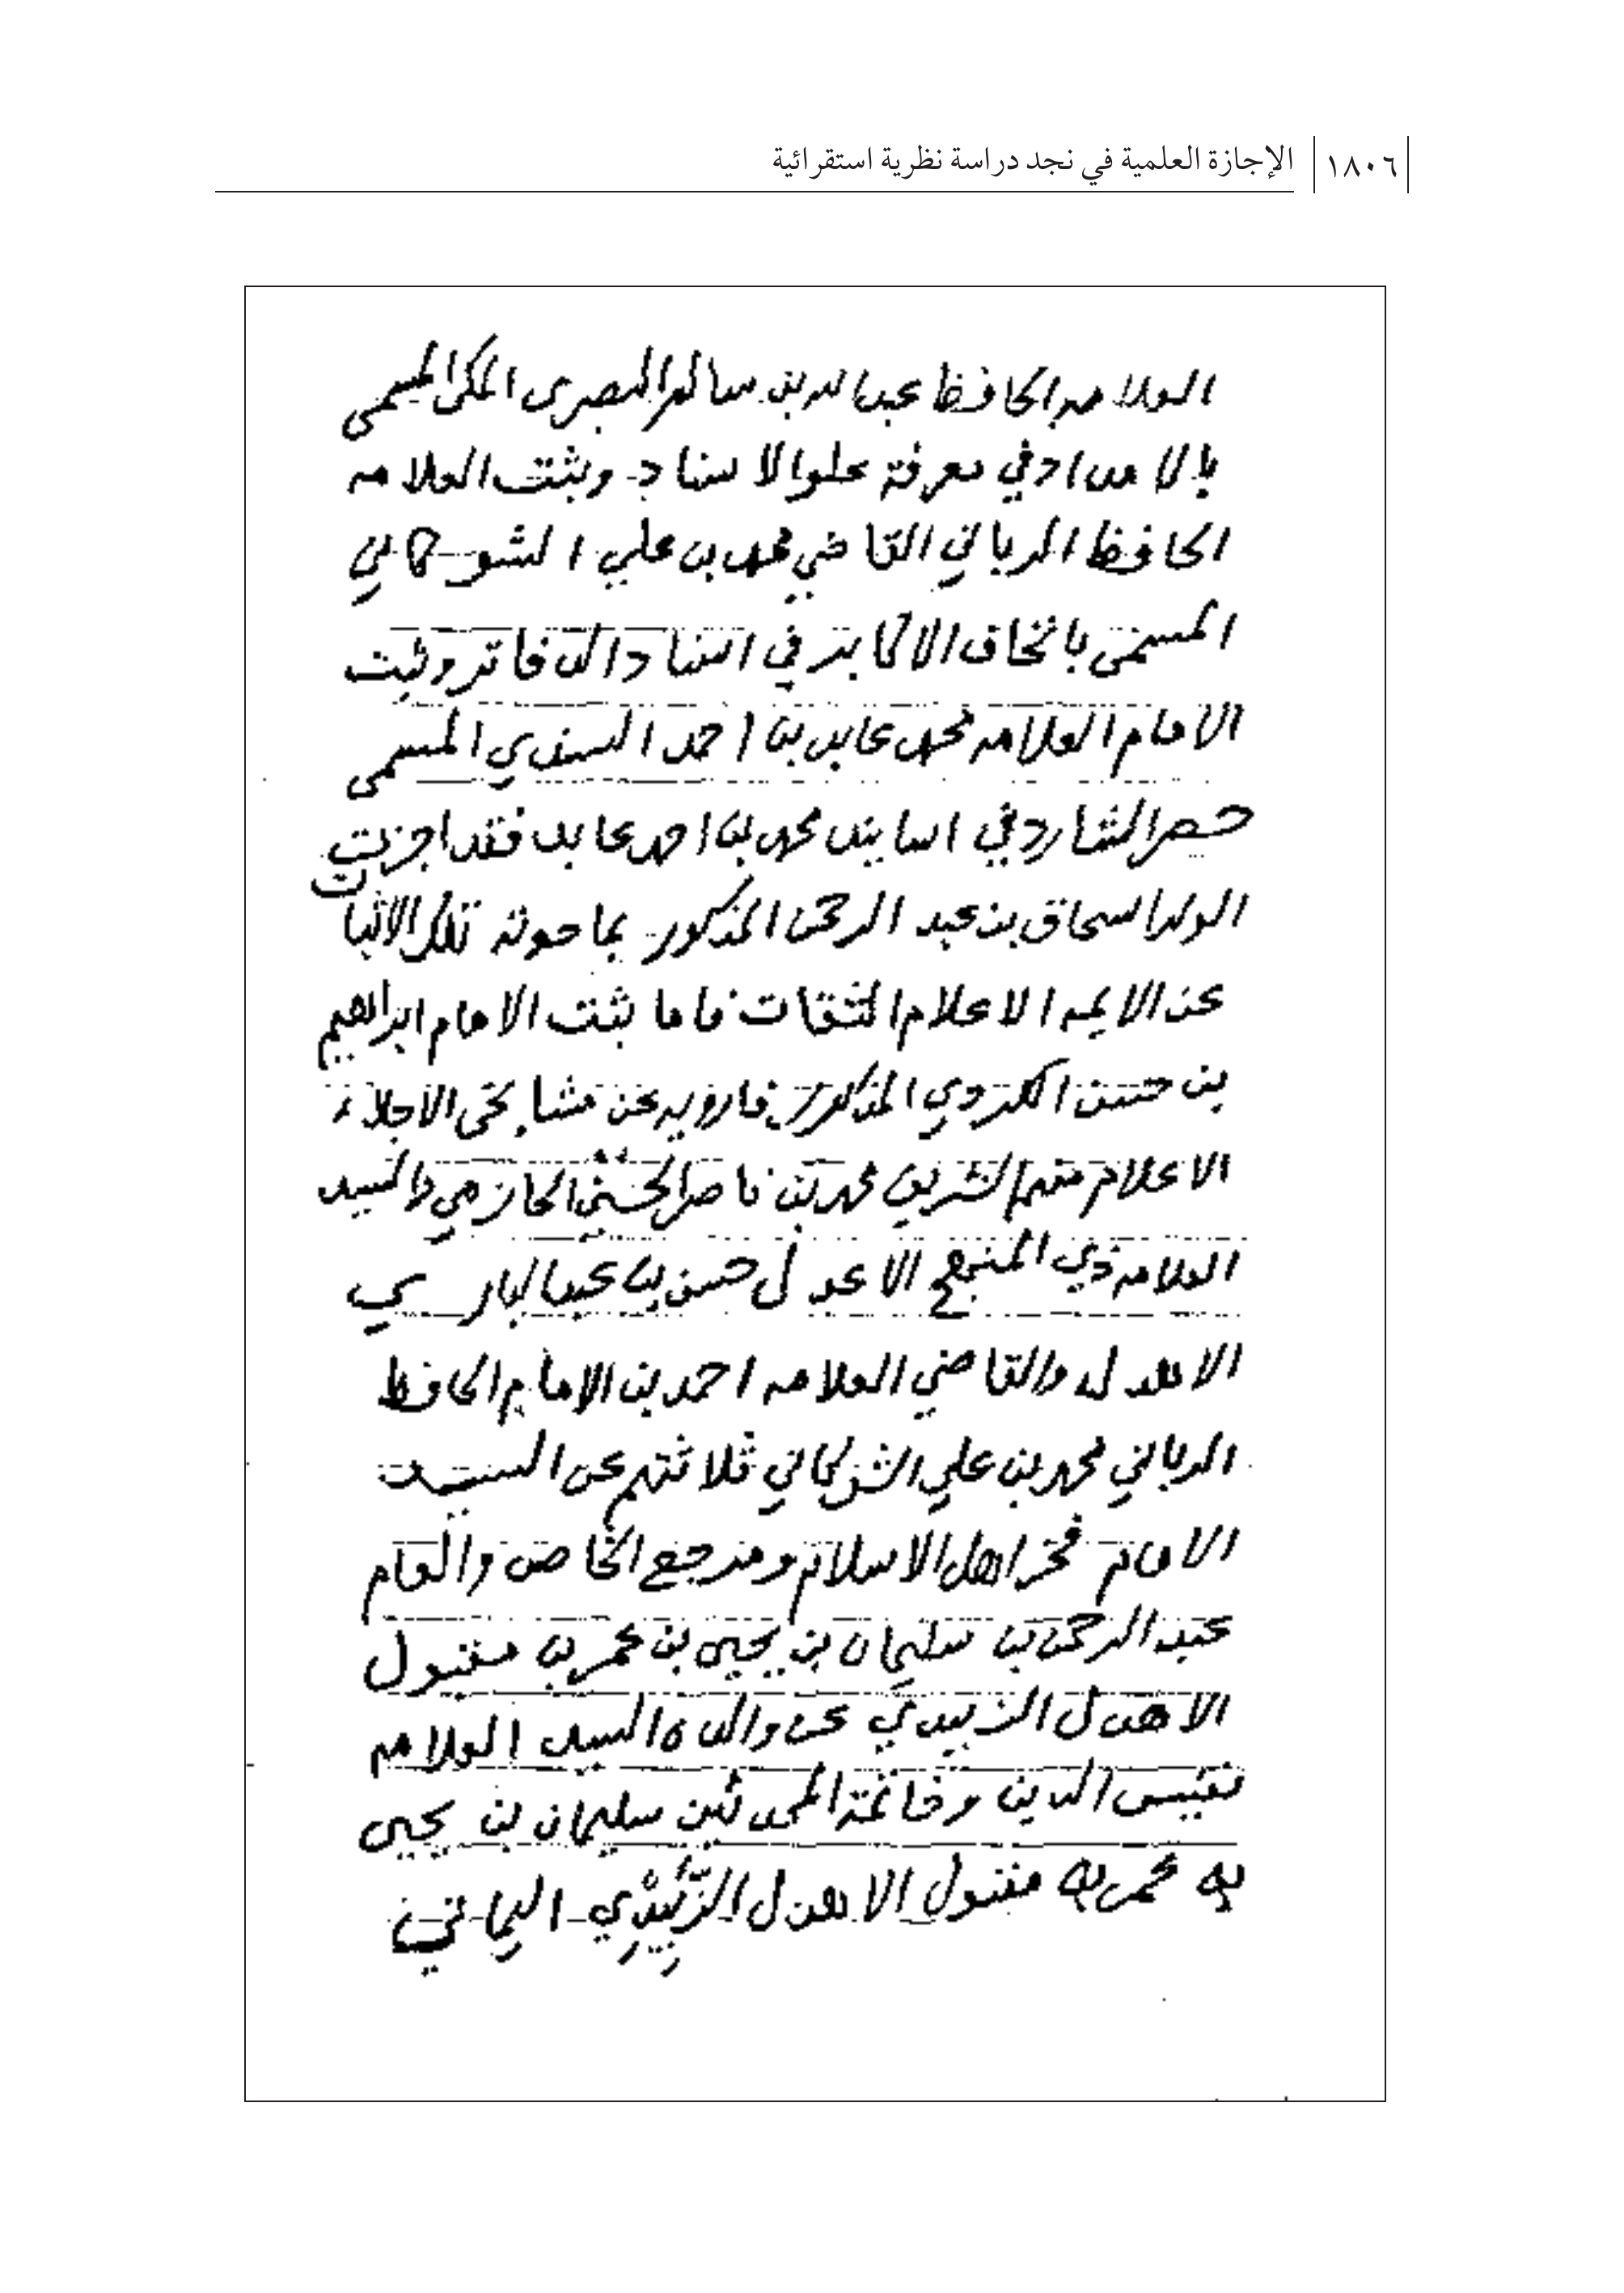 ١٨٠٦ الإجازة العلمية في نجد دراسة نظرية استقرائية
العلامه الحافظ عبد الله بن سالم البصرى المكى المسمى
بالامداد في معرفة علو الاسناد وبثبت العلامه
الحافظ الرباني القاضي محمد بن علي الشوكاني
المسمى باتحاف الاكابر في اسناد الدفاتر وثبت
الامام العلامه محمد عابد بن احمد السندي المسمى
حصر الشارد في اسانيد محمد بن احمد عابد فقد اجزت
الولد اسحاق بن عبد الرحمن المذكور بما حوته تلك الاثبات
عن الايمه الاعلام الثقات فاما ثبت الامام ابراهيم
بن حسن الكردي المذكور فارويه عن مشايخي الاجلاء
الاعلام منهم الشريف محمد بن ناصر الحسني الحازمي والسيد
العلامه ذي المنهج الاعدل حسن بن عبد الباري
الاهدل والقاضي العلامه احمد بن الامام الحافظ
الرباني محمد بن علي الشوكاني ثلاثتهم عن السيد
الامام فخر اهل الاسلام ومرجع الخاص والعام
عبد الرحمن بن سليمان بن يحيى بن عمر بن مقبول
الاهدل الزبيدي عن والده السيد العلامه
نفيس الدين وخاتمة المحدثين سليمان بن يحيى
بن عمر بن مقبول الاهدل الزَّبِيْدِي اليماني